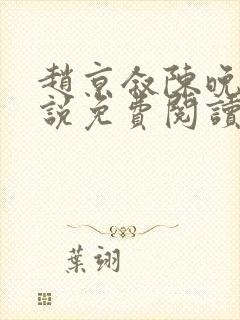 趙京叙陳晚
說免費閱讀
葉翊